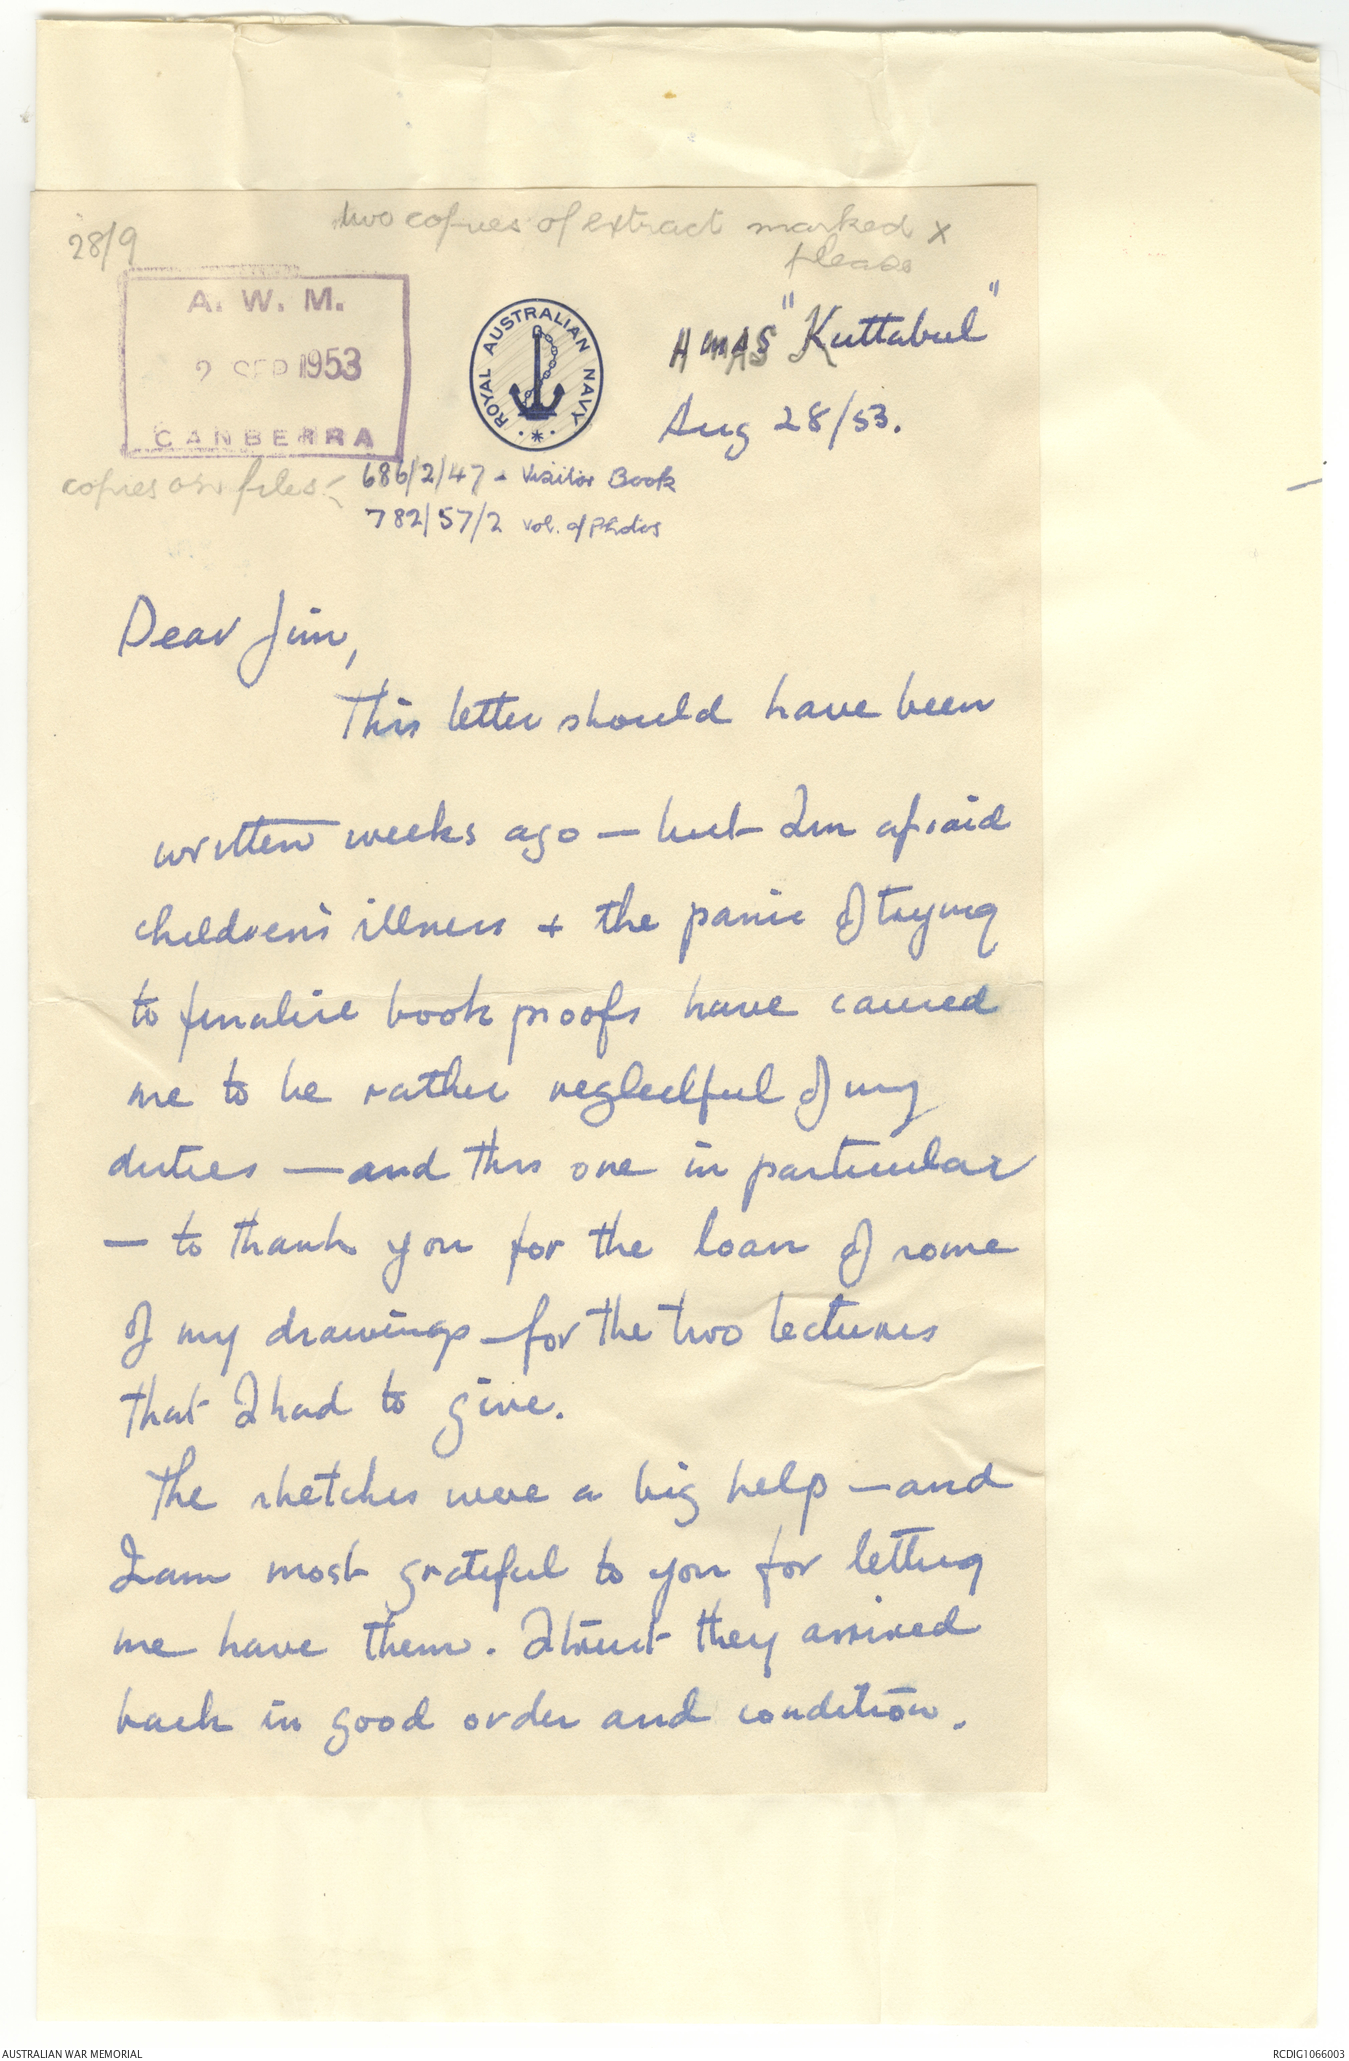 28/9
two copies of extract marked x
please
A. W. M.
2 SEP 1953
CANBERRA
ROYAL AUSTRALIAN NAVY
HMAS "Kuttabul"
Aug 28/53.
copies on files:-
686/2/47 - Visitor Book
782/57/2 Vol. of Photos
Dear Jim,
This letter should have been
written weeks ago — but Im afraid
children's illness + the panic of trying
to finalise book proofs have caused
me to be rather neglectful of my
duties — and this one in particular
— to thank you for the loan of some
of my drawings for the two lectures
that I had to give.
The sketches were a big help — and
I am most grateful to you for letting
me have them. I trust they arrived
back in good order and condition.
AUSTRALIAN WAR MEMORIAL
RCDIG1066003